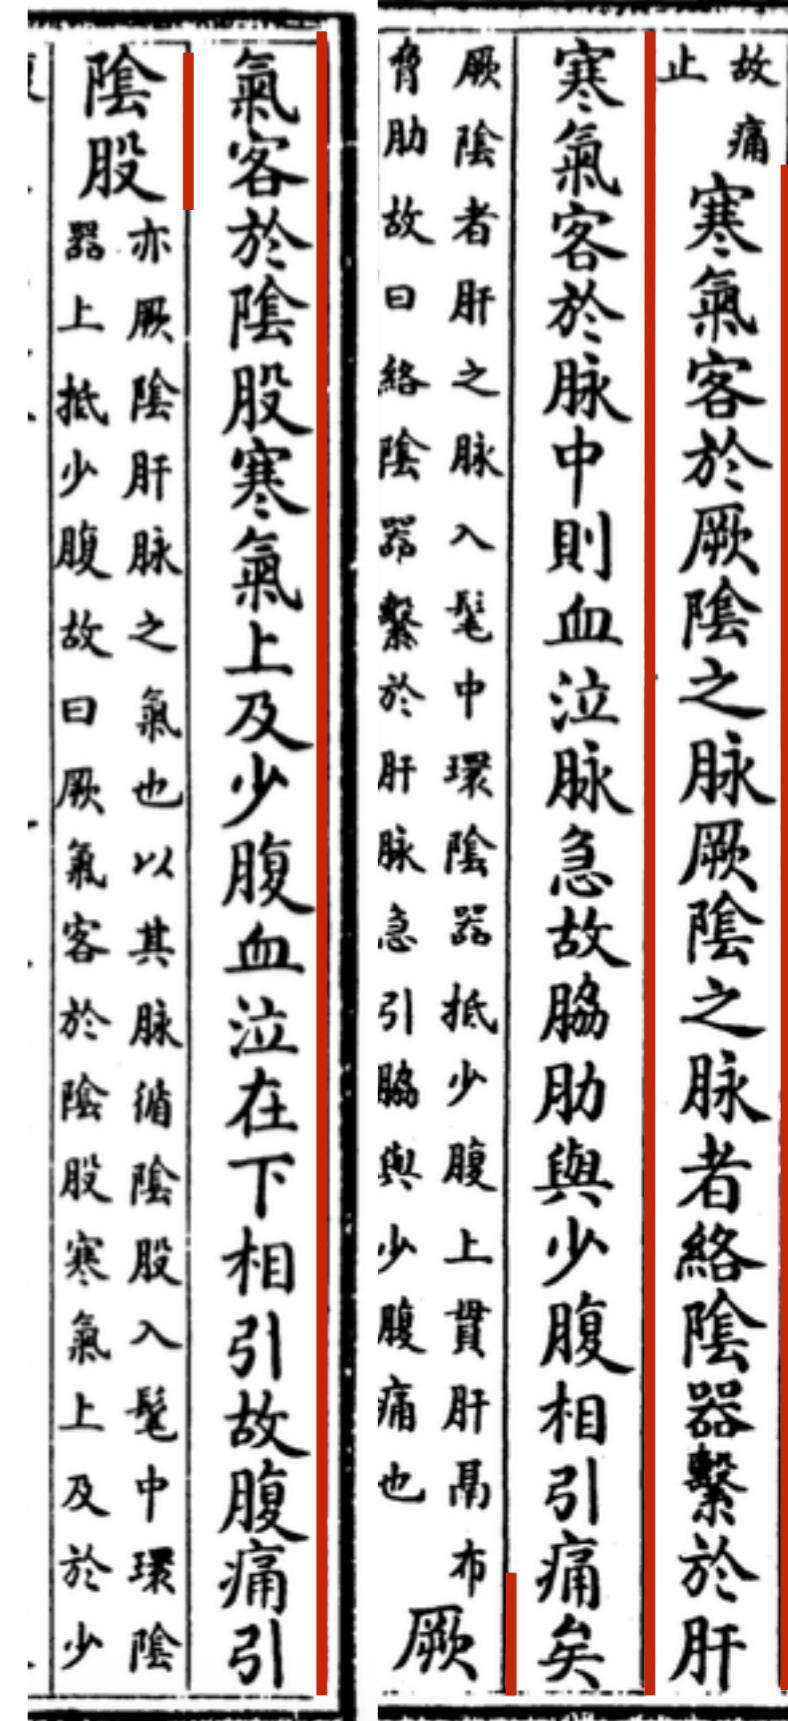 故痛
止
寒氣客於厥陰之脉厥陰之脉者絡陰器繫於肝
寒氣客於脉中則血泣脉急故脇肋與少腹相引痛矣
厥陰者肝之脉入髦中環陰器抵少腹上貫肝鬲布
脅肋故曰絡陰器繫於肝脉急引脇與少腹痛也
厥
氣客於陰股寒氣上及少腹血泣在下相引故腹痛引
陰股
亦厥陰肝脉之氣也以其脉循陰股入髦中環陰
器上抵少腹故曰厥氣客於陰股寒氣上及於少